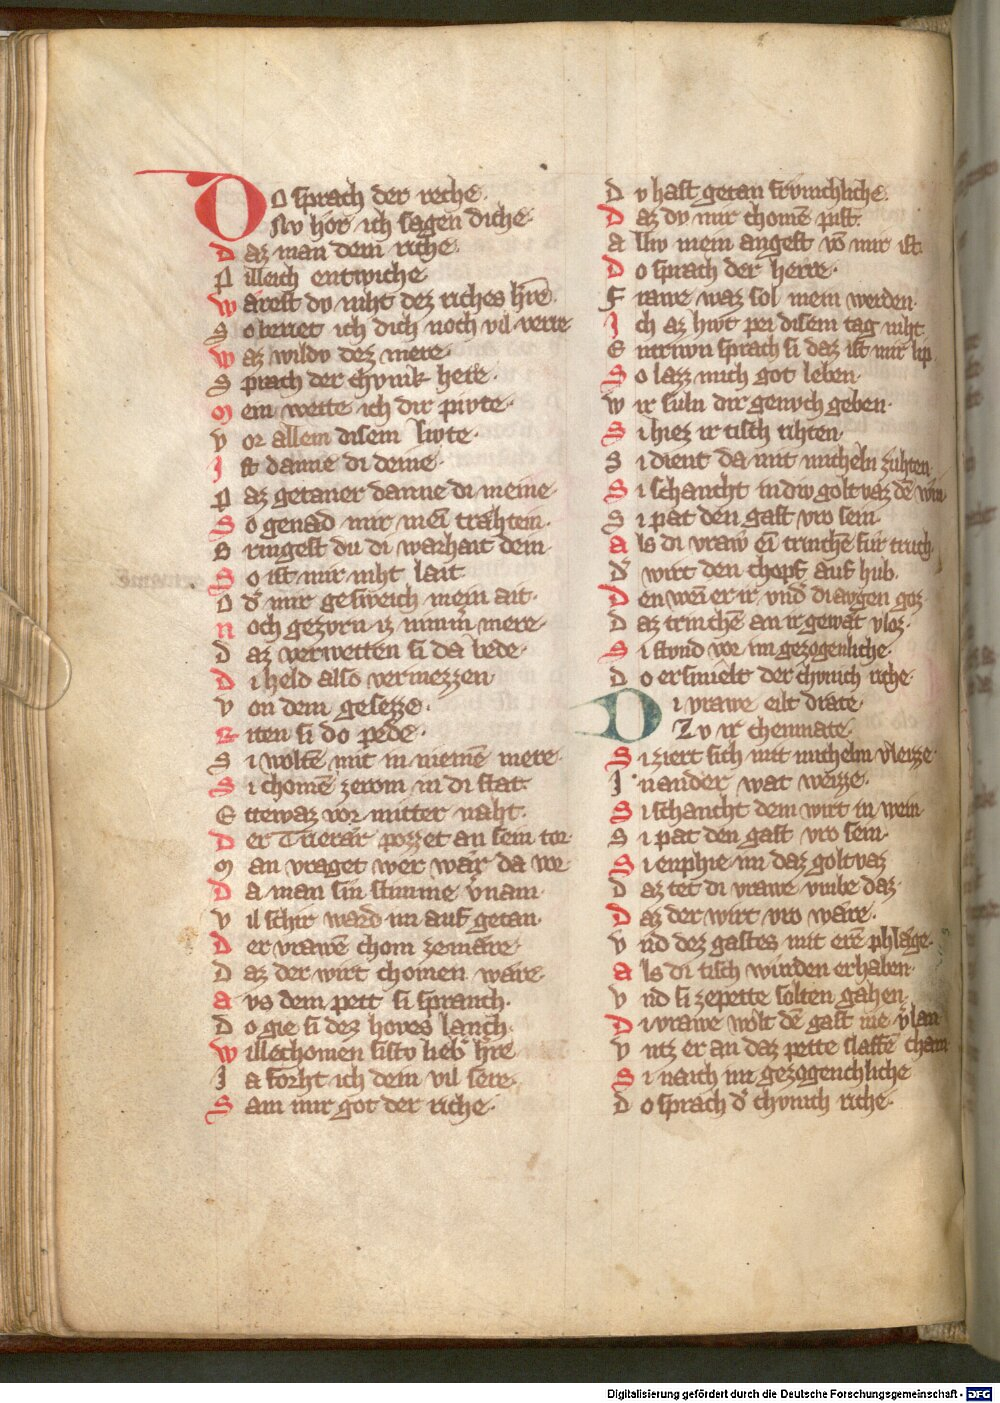 DO sprach der reche.
Nv hor ich sagen diche.
Daz man dem riche.
Pilleich entwiche.
Wærest dv niht dez riches hr̄e.
So beriet ich dich noch vil verre.
Waz wildv dez mere.
Sprach der chvnik here.
Mein wette ich dir pivte.
Vor allem disem livte.
Ist danne di deine.
Paz getaner danne di meine.
So genad mir mei trähtein.
Bringest du di warhait dein.
So ist mir niht lait.
Od͛ mir gesweich mein ait.
Noch gezvrn iz nimm mere.
Daz verwetten si da bede.
Di held also vermezzen.
Von dem gesezze.
Riten si do pede.
Si wolte mit in nieme mere.
Si chome zerom in di stat.
Ettewaz vor mitter naht.
Der Trierär pozzet an sein tor.
Man vraget wer wär da vor.
Da man sin stimme v̄nam.
Vil schir ward im auf getan.
Der vrawe chom ze märe.
Daz der wirt chomen wäre.
Avs dem pett si spranch.
Do gie si dez hoves lanch.
Willechomen sistv lieb͛ hr̄e
Ia forht ich dein vil sere.
Sam mir got der riche.
Dv hast getan frivnchliche.
Daz dv mir chome pist.
Alliv mein angest vō mir ist.
Do sprach der herre.
Frawe waz sol mein werden.
Ich az hivt pei disem tag niht.
Entriwn sprach si daz ist mir lip.
So lazz mich got leben.
Wir suln dir genvch geben.
Si hiez ir tisch rihten.
Si dient da mit micheln zühten.
Si schancht in div goltvaz de win.
Si pat den gast vro sein.
Als di vraw ei trinche für truch.
D͛ wirt den chopf auf hub.
Den wei er ir vnd͛ di avgen goz.
Daz trinche an ir gewät vloz.
Si stvnd vor im gezogenliche.
Do ersmielt der chvnich riche.
Di vrawe eilt drate.
Zv ir chemnate.
Si ziert sich mit michelm v̄leizze.
In ander wat weizze.
Si schancht dem wirt in wein.
Si pat den gast vro sein.
Si enphie im daz goltvaz
Daz tet di vrawe vmbe daz.
Daz der wirt vro wäre.
Vnd dez gastes mit ere phläge.
Als di tisch wurden erhaben.
Vnd si ze pette solten gahen.
Di vrawe wolt de gast nie v̄lan
Vntz er an daz pette slaffe cham
Si naich im gezogenchliche
Do sprach d͛ chvnich riche.